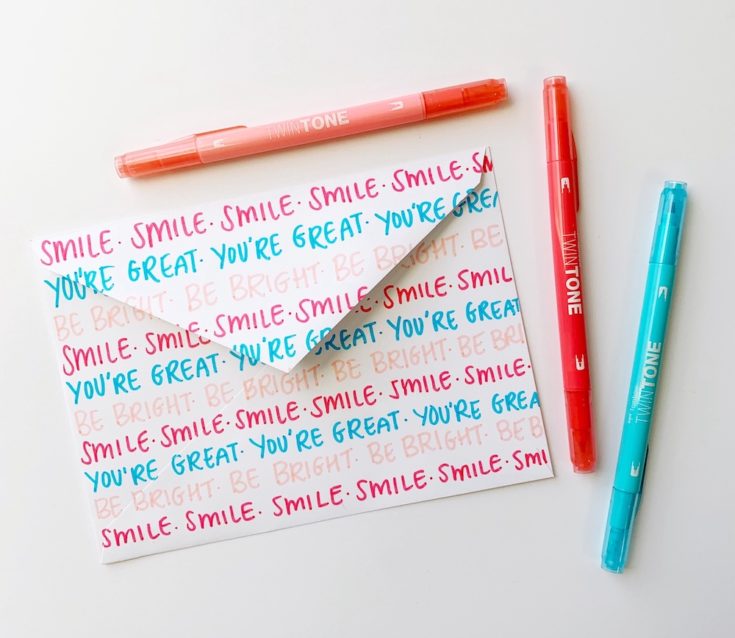 TWINTONE
SMILE· SMILE· SMILE· SMILE· SMILE· S
YOU'RE GREAT· YOU'RE GREAT· YOU'RE GREA
BE BRIGHT· BE BRIGHT· BE BRIGHT· BE
SMILE· SMILE· SMILE· SMILE· SMILE· SMIL
YOU'RE GREAT· YOU'RE GREAT· YOU'RE GREAT
BE BRIGHT· BE BRIGHT· BE BRIGHT· BE BRI
SMILE· SMILE· SMILE· SMILE· SMILE· SMILE·
YOU'RE GREAT· YOU'RE GREAT· YOU'RE GREA
BE BRIGHT· BE BRIGHT· BE BRIGHT· BE B
SMILE· SMILE· SMILE· SMILE· SMILE· SMI
TWINTONE
TWINTONE